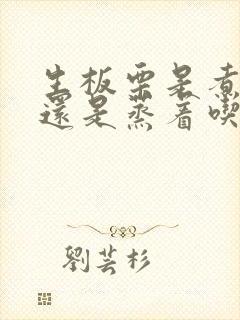 生板栗是煮
還是蒸着喫
劉芸杉